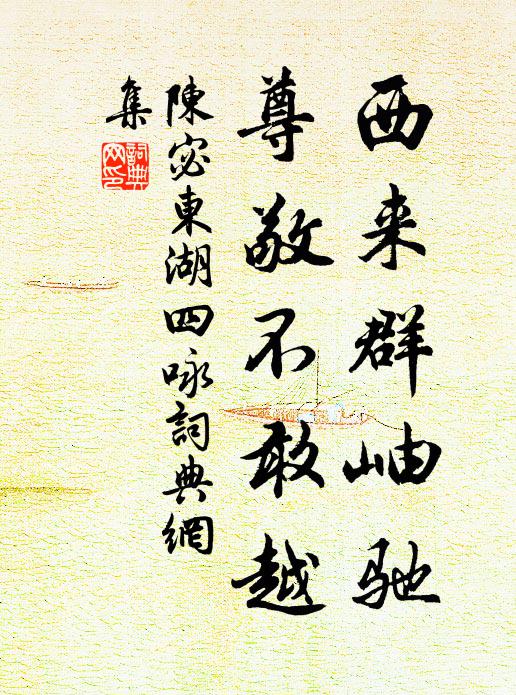 西来群岫驰
尊敬不敢越
陳宓東湖四咏詞典網
集
詞典網印